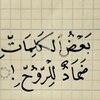 بَعْضُ الكَلِمَاتِ
ضَمَادٌ لِلرُّوحِ